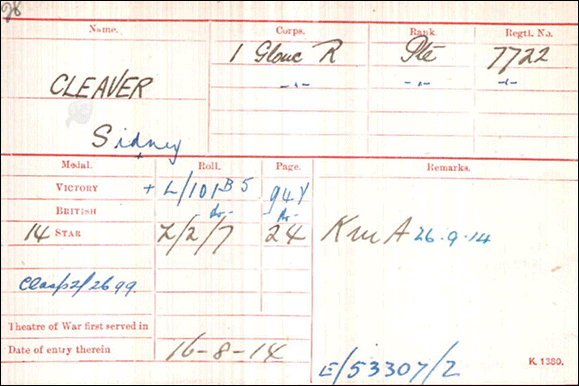 Name. Corps. Rank. Regtl. No.
CLEAVER 1 Glouc R Pte 7722
-"- -"-
Sidney
Medal. Roll. Page. Remarks.
VICTORY + L/101 B5 94Y
BRITISH do- do-
14 STAR L/2/7 24 KinA 26.9.14
Clasp Z/2699.
Theatre of War first served in
Date of entry therein 16-8-14
E/53307/2 K 1380.